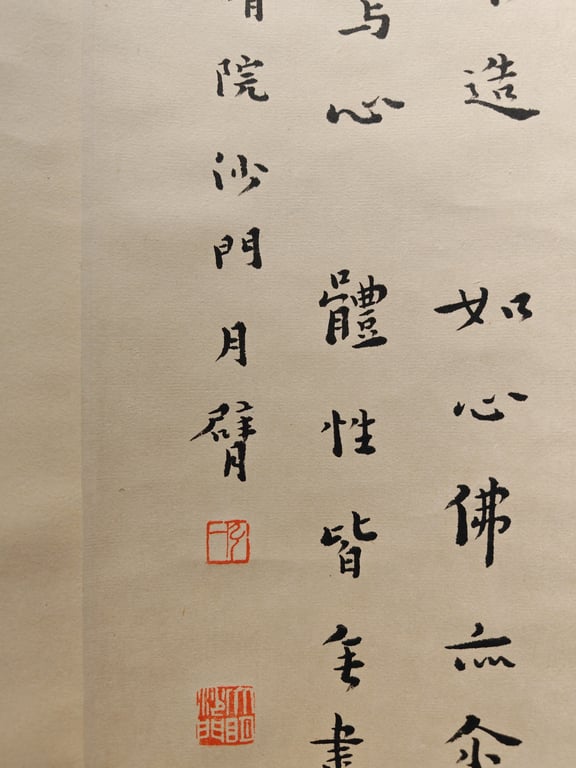 造如心佛亦尒
与心體性皆無盡
院沙門月臂
弘一